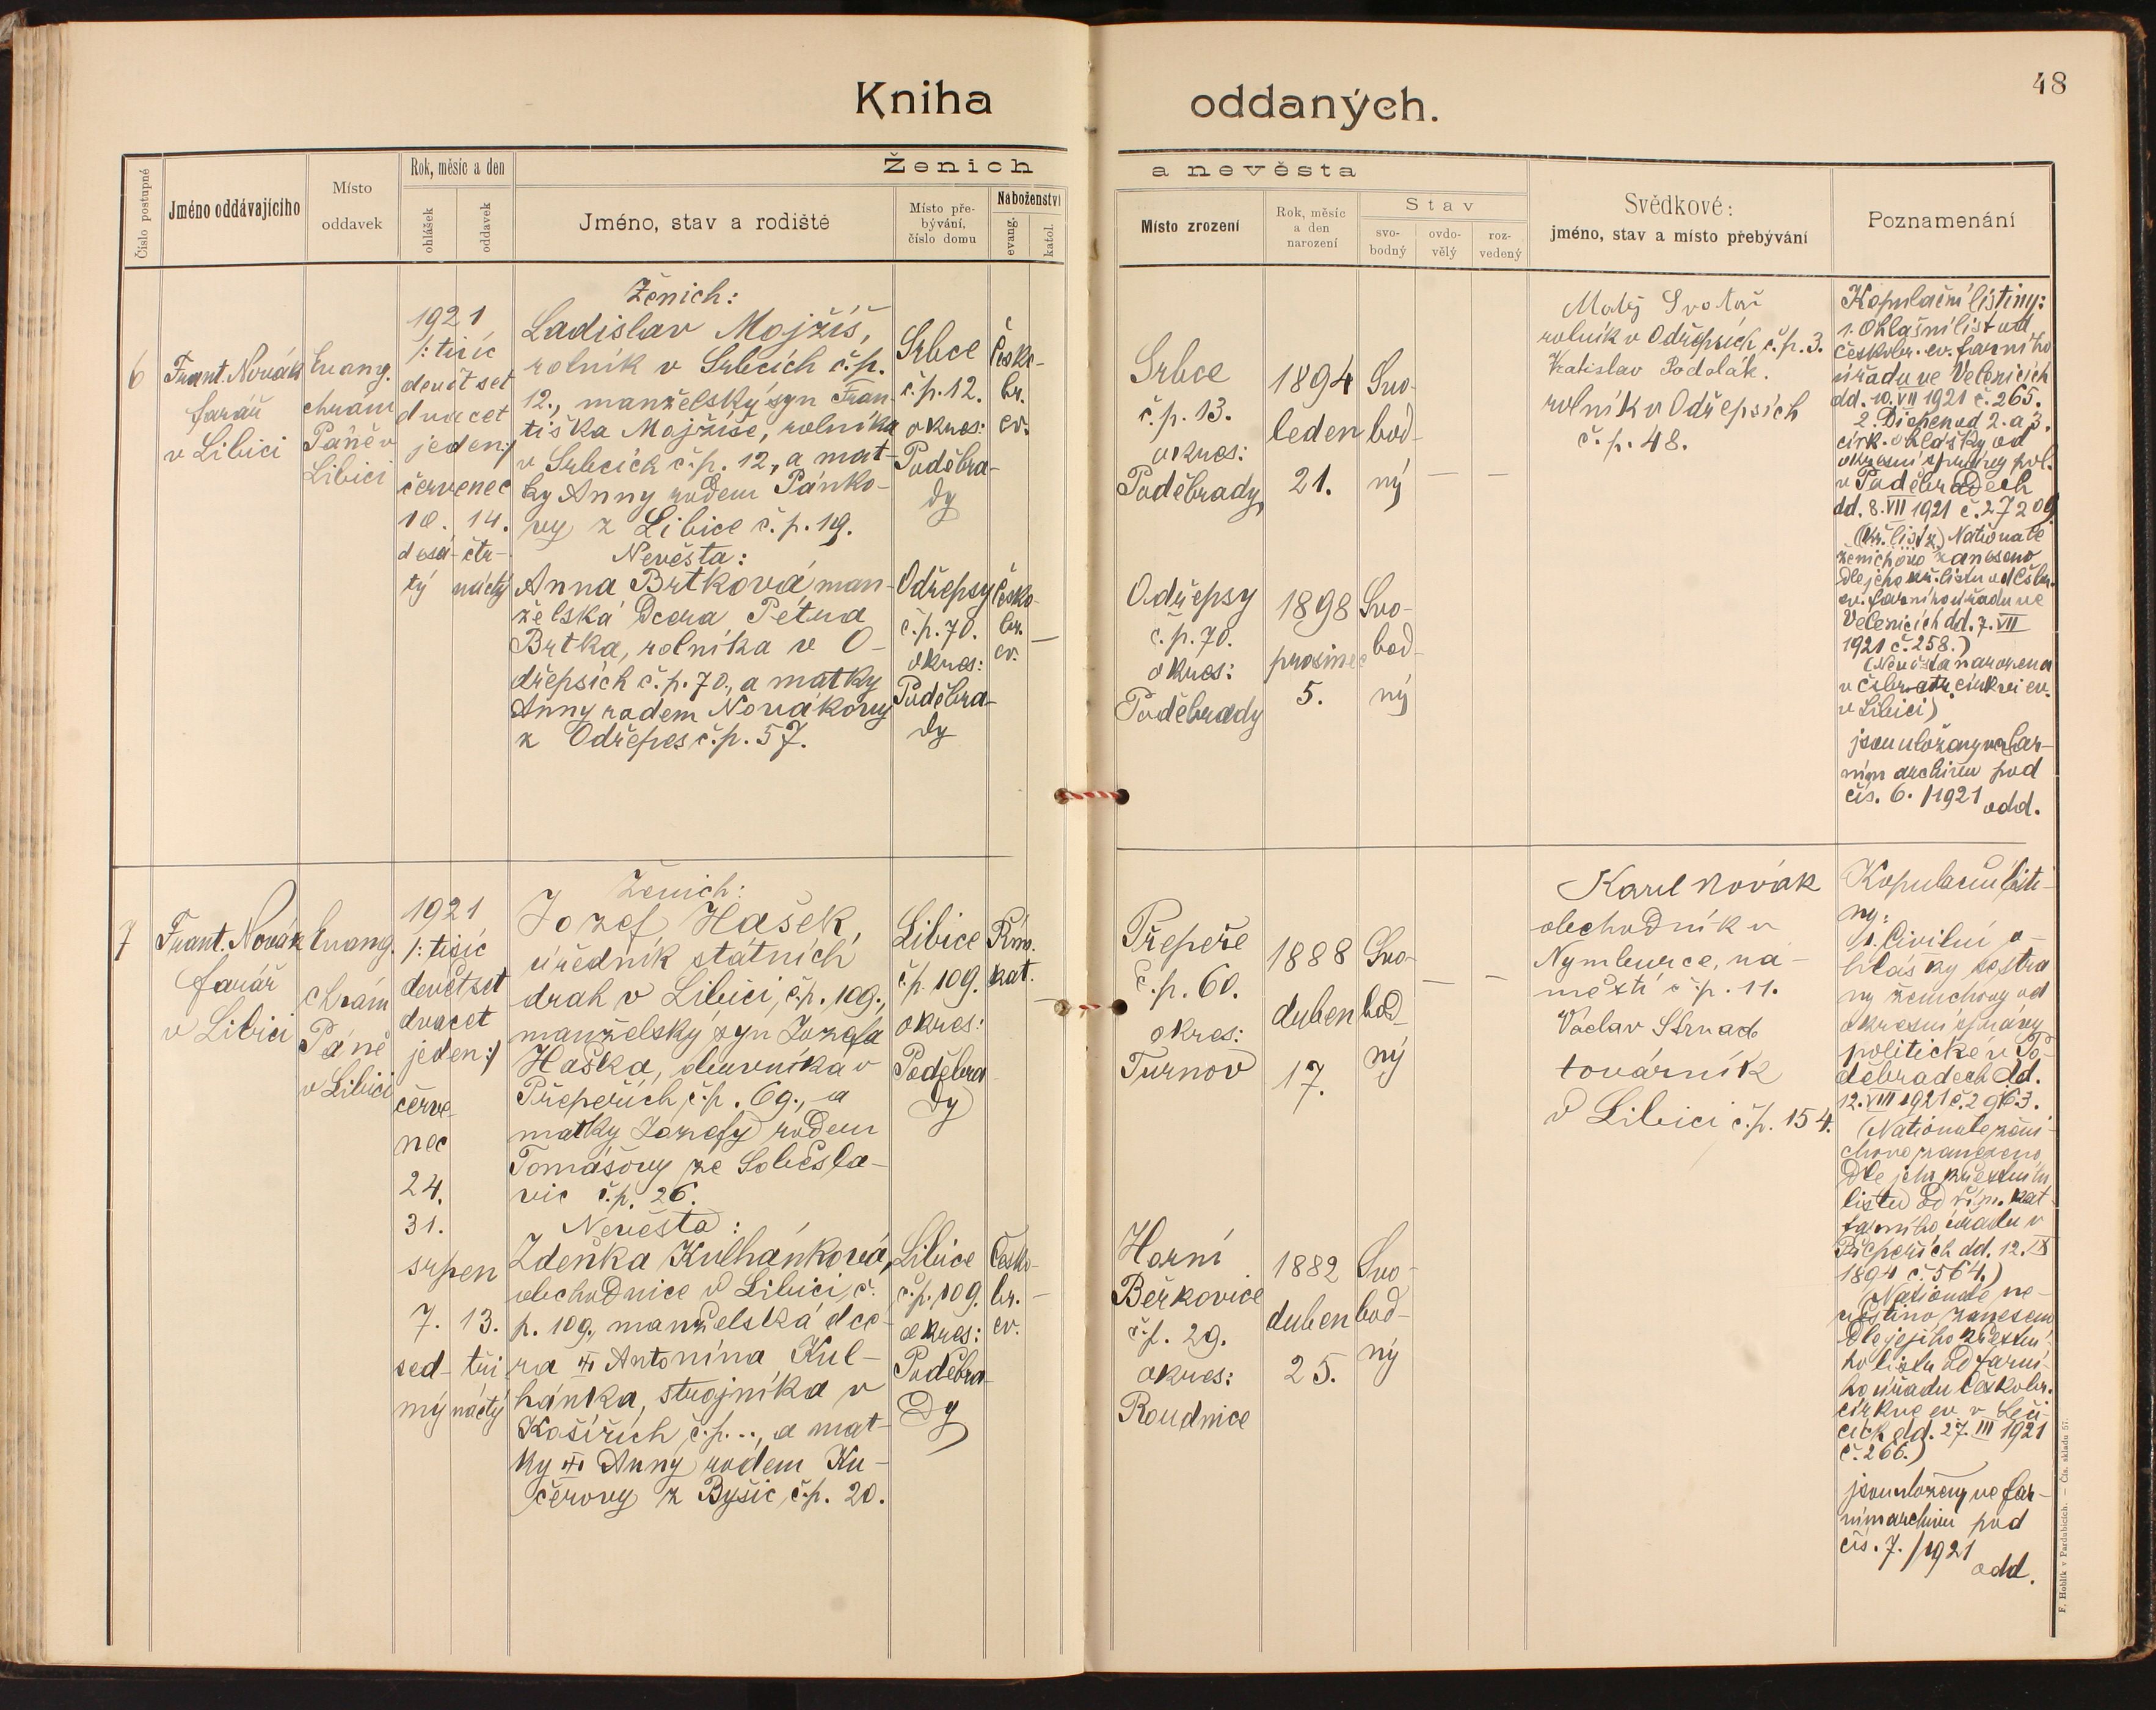 Kniha oddaných.
48
Číslo postupné
Jméno oddávajícího
Místo
oddavek
Rok, měsíc a den
ohlášek
oddavek
Ženich
a nevěsta
Jméno, stav a rodiště
Místo pře-
bývání,
číslo domu
Náboženství
evang.
katol.
Místo zrození
Rok, měsíc
a den
narození
Stav
svo-
bodný
ovdo-
vělý
roz-
vedený
Svědkové:
jméno, stav a místo přebývání
Poznamenání
6
Frant. Novák
farář
v Libici
Evang.
chrám
Páně v
Libici
1921
/: tisíc
devět set
dvacet
jeden :/
červenec
10. 14.
desá- čtr-
tý náctý
Ženich:
Ladislav Mojžíš,
rolník v Srbcích č.p.
12., manželský syn Fran-
tiška Mojžíše, rolníka
v Srbcích č.p. 12, a mat-
ky Anny rodem Pánko-
vy z Libice č.p. 19.
Nevěsta:
Anna Brtková, man-
želská dcera Petra
Brtka, rolníka v O-
dřepsích č.p. 70., a matky
Anny rodem Novákovy
z Odřepes č.p. 57.
Srbce
č.p. 12.
okres:
Poděbra-
dy
Odřepsy
č.p. 70.
okres:
Poděbra-
dy
Česko-
br.
ev.
Česko-
br.
ev.
Srbce
č.p. 13.
okres:
Poděbrady
1894
leden
21.
Svo-
bod-
ný
Odřepsy
č.p. 70.
okres:
Poděbrady
1898
prosinec
5.
Svo-
bod-
ný
Matěj
rolník v Odřepsích č.p. 3.
Vratislav Podolák.
rolník v Odřepsích
č.p. 48.
Kopulační listiny:
1. Ohlašní list od
českobr. ev. farního
úřadu ve Velenicích
dd. 10. VII 1921 č. 265.
2. Dispens od 2. a 3.
církv. ohlášky od
okresní správy pol.
v Poděbradech
dd. 8. VII 1921 č. 27209
Nationale
ženichovo zaneseno
dle jeho kř. listu od čsbr.
ev. farního úřadu ve
Velenicích dd. 7. VII
1921 č. 258.)
(Nevěsta narozena
v čsbratr. církvi ev.
v Libici)
jsou uloženy ve far-
ním archivu pod
čís. 6. /1921 odd.
7
Frant. Novák
farář
v Libici
Evang.
chrám
Páně
v Libici
1921
/: tisíc
devět set
dvacet
jeden :/
červe-
nec
24.
31.
srpen
7. 13.
sed- tři
mý náctý
Ženich:
Jozef Hašek,
úředník státních
drah v Libici, č.p. 109.,
manželský syn Jozefa
Haška, v
Přepeřích, č.p. 69., a
matky Jozefy rodem
Tomášovy ze Soběsla-
vic č.p. 26.
Nevěsta:
Zdeňka Kulhánková,
obchodnice v Libici, č.
p. 109., manželská dce-
ra Antonína Kul-
hánka, strojníka v
Košířích, č.p..., a mat-
ky Anny rodem Ku-
čerovy z Byšic, č.p. 20.
Libice
č.p. 109.
okres:
Poděbra-
dy
Libice
č.p. 109.
okres:
Poděbra-
dy
Řím.
kat.
Česko-
br.
ev.
Přepeře
č.p. 60.
okres:
Turnov
1888
duben
17.
Svo-
bod-
ný
Horní
Beřkovice
č.p. 29.
okres:
Roudnice
1882
duben
25.
Svo-
bod-
ný
Karel Novák
obchodník v
Nymburce, ná-
městí č.p. 11.
Václav Strnad
továrník
v Libici č.p. 154.
Kopulační listi-
ny:
1. Civilní o-
hlášky se stra
ny ženichovy od
okresní správy
politické v Po-
děbradech dd.
12. VIII 1921 č. 2963.
(Nationale ženi-
chovo zaneseno
dle jeho křestního
listu od řím. kat
farního úřadu v
Přepeřích dd. 12. IX
1894 č. 564.)
(Nationale ne-
věstino zaneseno
dle jejího křestní-
ho listu od farní-
ho úřadu českobr.
církve ev. v Leči-
cích dd. 27. III 1921
č. 266.)
jsou uloženy ve far-
ním archivu pod
čís. 7. /1921
odd.
F. Hoblík v Pardubicích. — Čís. skladu 57.